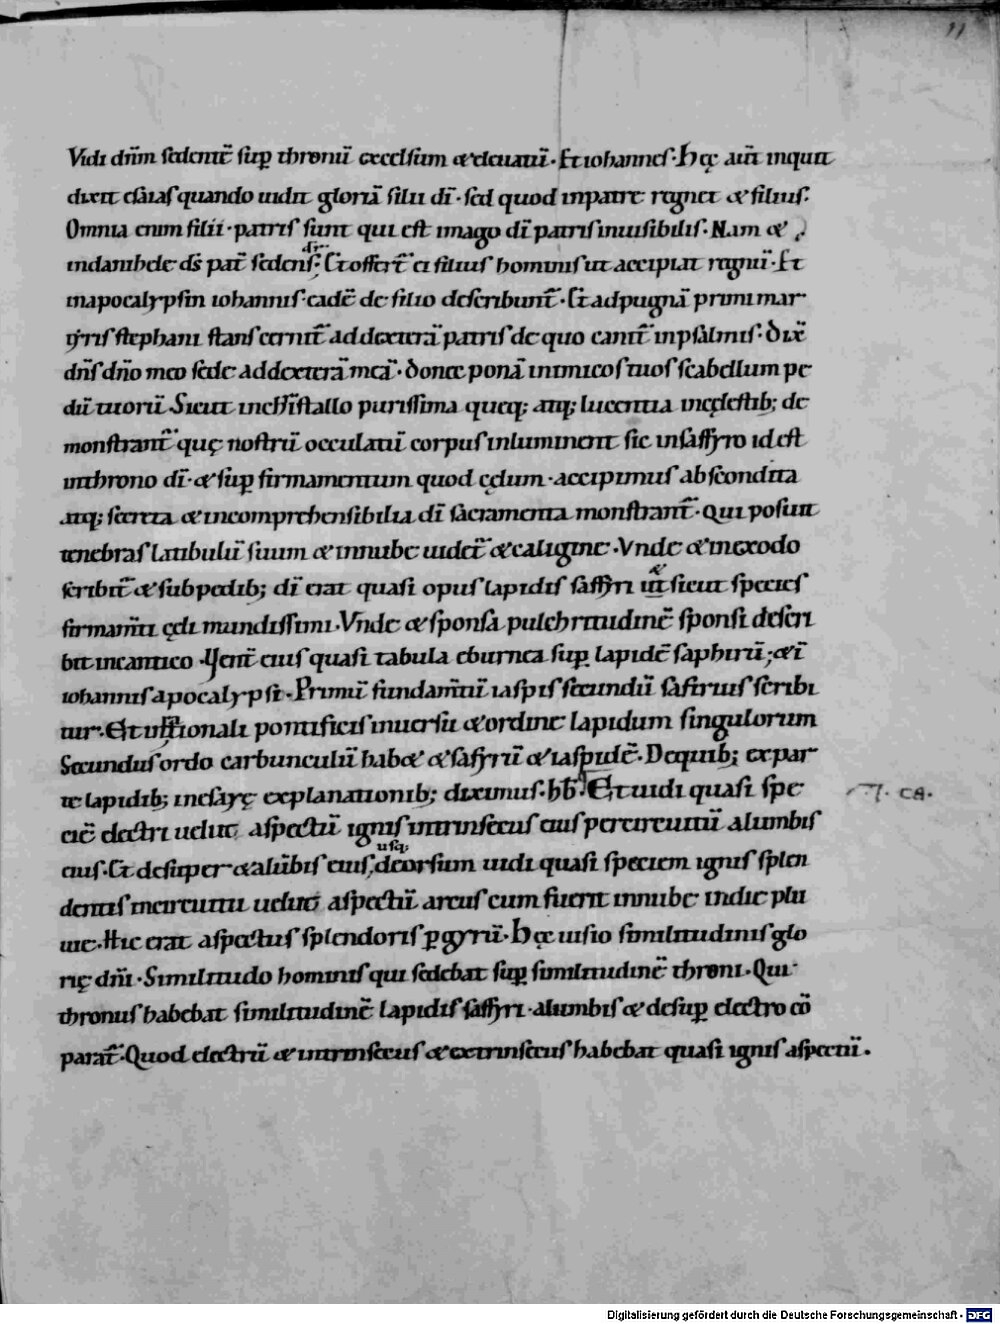 11
Vidi dñm sedentē sup̱ thronū excelsum & eleuatū. Et iohannes. Hęc autē inquit
dixit esaias quando uidit gloriā filii dī. sed quod in patre regnet & filius.
Omnia enim filii. patris sunt qui est imago dī patris inuisibilis. Nam &
in danihele dš pat̄ sedens dr̄. Et offert̄ ei filius hominis ut accipiat regnū. Et
in apocalypsin iohannis. eadē de filio describunt̄. Et ad pugnā primi mar
tyris stephani stans cernit̄ ad dexterā patris de quo canit̄ in psalmis. Dix̄
dñs dño meo sede ad dexterā meā. donec ponā inimicos tuos scabellum pe
dū tuorū. Sicut in cristallo purissima queq; atq; lucentia in cęlestib; de
monstrant̄ quę nostrū occulatū corpus inluminent sic in saffyro id est
in throno dī. & sup̱ firmamentum quod cęlum. accipimus abscondita
atq; secreta & incomprehensibilia dī sacramenta monstrant̄. Qui posuit
tenebras latibulū suum & in nube uidet̄ & caligine. Vnde & in exodo
scribit̄ & sub pedib; dī erat quasi opus lapidis saffyri & ut sicut species
firmam̄ti cęli mundissimi. Vnde & sponsa pulchritudinē sponsi descri
bit in cantico. Vent̄ eius quasi tabula eburnea sup̱ lapidē saphirū; & ī
iohannis apocalypsi. Primū fundam̄tū iaspis secundū safirius scribi
tur. Et in rationali pontificis in uersu & ordine lapidum singulorum
Secundus ordo carbunculū hab& & saffyrū & iaspidē. De quib; ex par
te lapidib; in esayę explanationib; diximus. hb̄. Et uidi quasi spe
ciē electri uelut aspectū ignis intrinsecus eius per circuitū a lumbis
eius. Et desuper & a lūbis eius usq; deorsum uidi quasi speciem ignis splen
dentis in circuitu uelut aspectū arcus cum fuerit in nube in die plu
uie. Hic erat aspectus splendoris p̱ gyrū. Hęc uisio similitudinis glo
rię dñi. Similitudo hominis qui sedebat sup̱ similitudinē throni. Qui
thronus habebat similitudinē lapidis saffyri. a lumbis & desup̱ electro cō
parat̄. Quod electrū & intrinsecus & extrinsecus habebat quasi ignis aspectū.
Digitalisierung gefördert durch die Deutsche Forschungsgemeinschaft - DFG